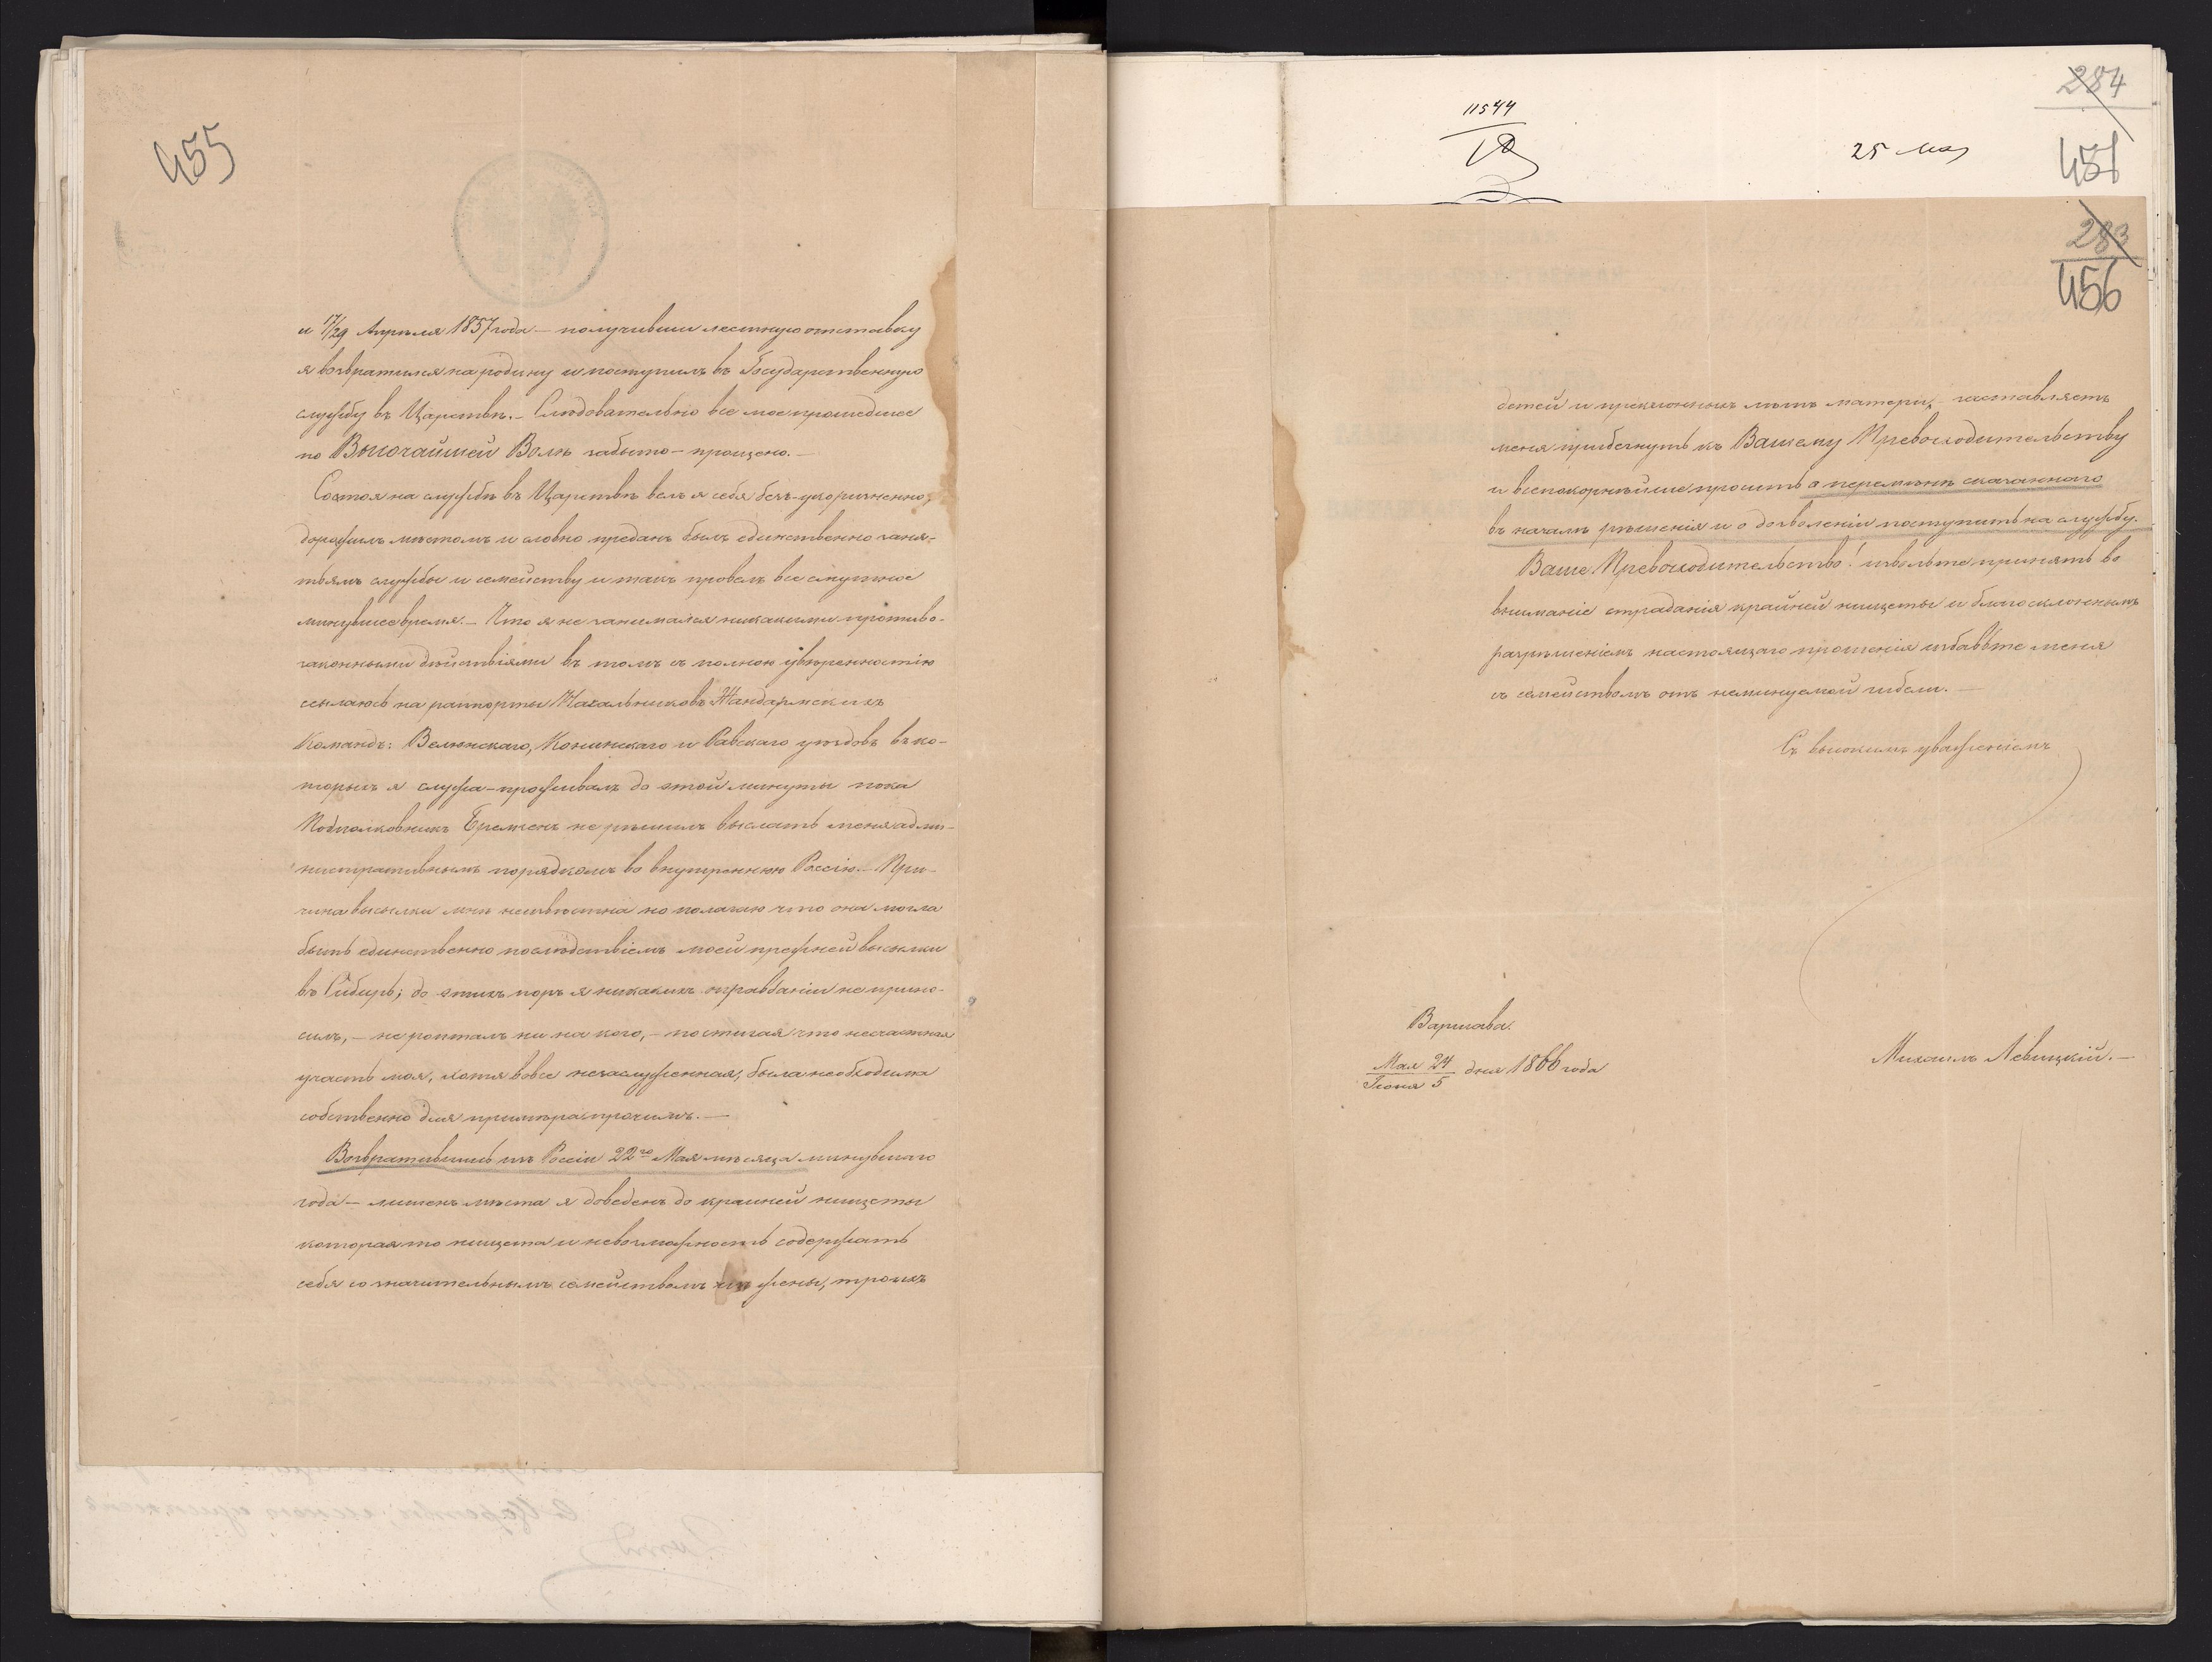 455
и 17/29 Апрѣля 1857 года – получивши лестную отставку
я возвратился на родину и поступилъ въ Государственную
службу въ Царствѣ. – Слюдовательно все мое прошедшее
по Высочайшей Волѣ забыто – прощено. –
Состоя на службѣ въ Царствѣ велъ я себя безъ-укоризненно,
дорожилъ мѣстомъ и словно преданъ былъ единственно заня-
тьямъ службы и семейству и такъ провелъ все смутное
минувшее время. – Что я не занимался никакими противо-
законными дѣйствіями въ томъ съ полною увѣренностію
ссылаюсь на рапорты Начальниковъ Жандармскихъ
Командъ: Велюнскаго, Конинскаго и Равскаго уѣздовъ въ ко-
торыхъ я служа – проживалъ до этой минуты пока
Подполковникъ Бремсенъ не рѣшилъ выслать меня адми-
нистративнымъ порядкомъ во внутреннюю Россію. – При-
чина высылки мнѣ неизвѣстна но полагаю что она могла
быть единственно послѣдствіемъ моей прежней высылки
въ Сибирь; до этихъ поръ я никакихъ оправданіи не прино-
силъ, – не ропталъ ни на кого, – постигая что несчастная
участь моя, хотя вовсе незаслуженная, была необходима
собственно для примѣра прочимъ. –
Возвратившись изъ Россіи 22го Мая мѣсяца минувшаго
года – лишенъ мѣста я доведенъ до крайней нищеты
которая то нищета и невозможность содержать
себя со значительнымъ семействомъ изъ жены, троихъ
11544
25 Мая
284
451
283
456
детей и преклонныхъ лѣтъ матери, заставляетъ
меня прибегнуть къ Вашему Превосходительству
и всепокорнѣйше просить о перемѣнѣ сказаннаго
въ началѣ рѣшенія и о дозволеніи поступить на службу.
Ваше Превосходительство! извольте принять во
вниманіе страданія крайней нищеты и благосклоннымъ
разрѣшеніемъ настоящаго прошенія избавьте меня
съ семействомъ отъ неминуемой гибели. –
Съ высокимъ уваженіемъ
Варшава.
Мая 24 / Іюня 5 дня 1866 года
Михаилъ Левицкій. –